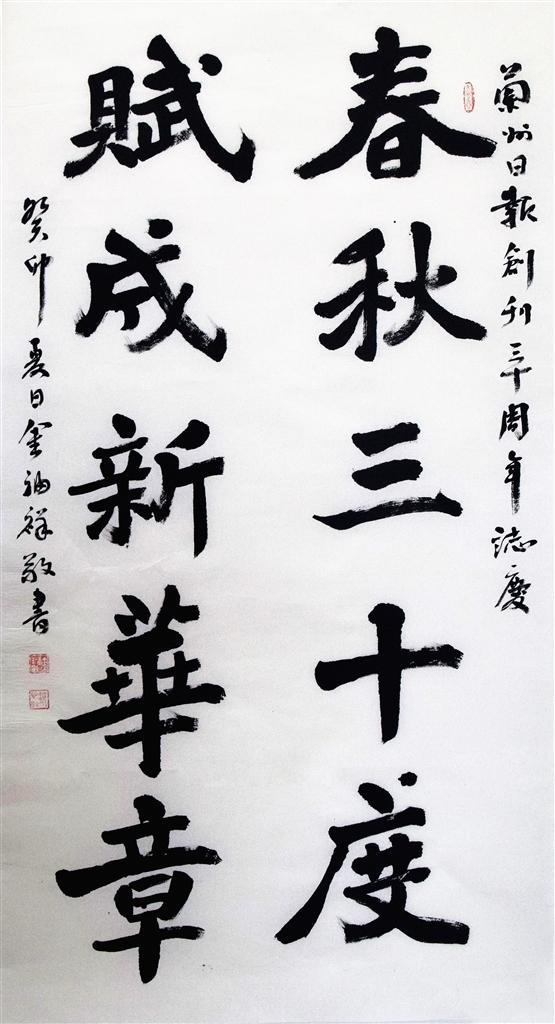 蘭州日報創刊三十周年誌慶
春秋三十度
賦成新華章
癸卯夏日金祥敬書